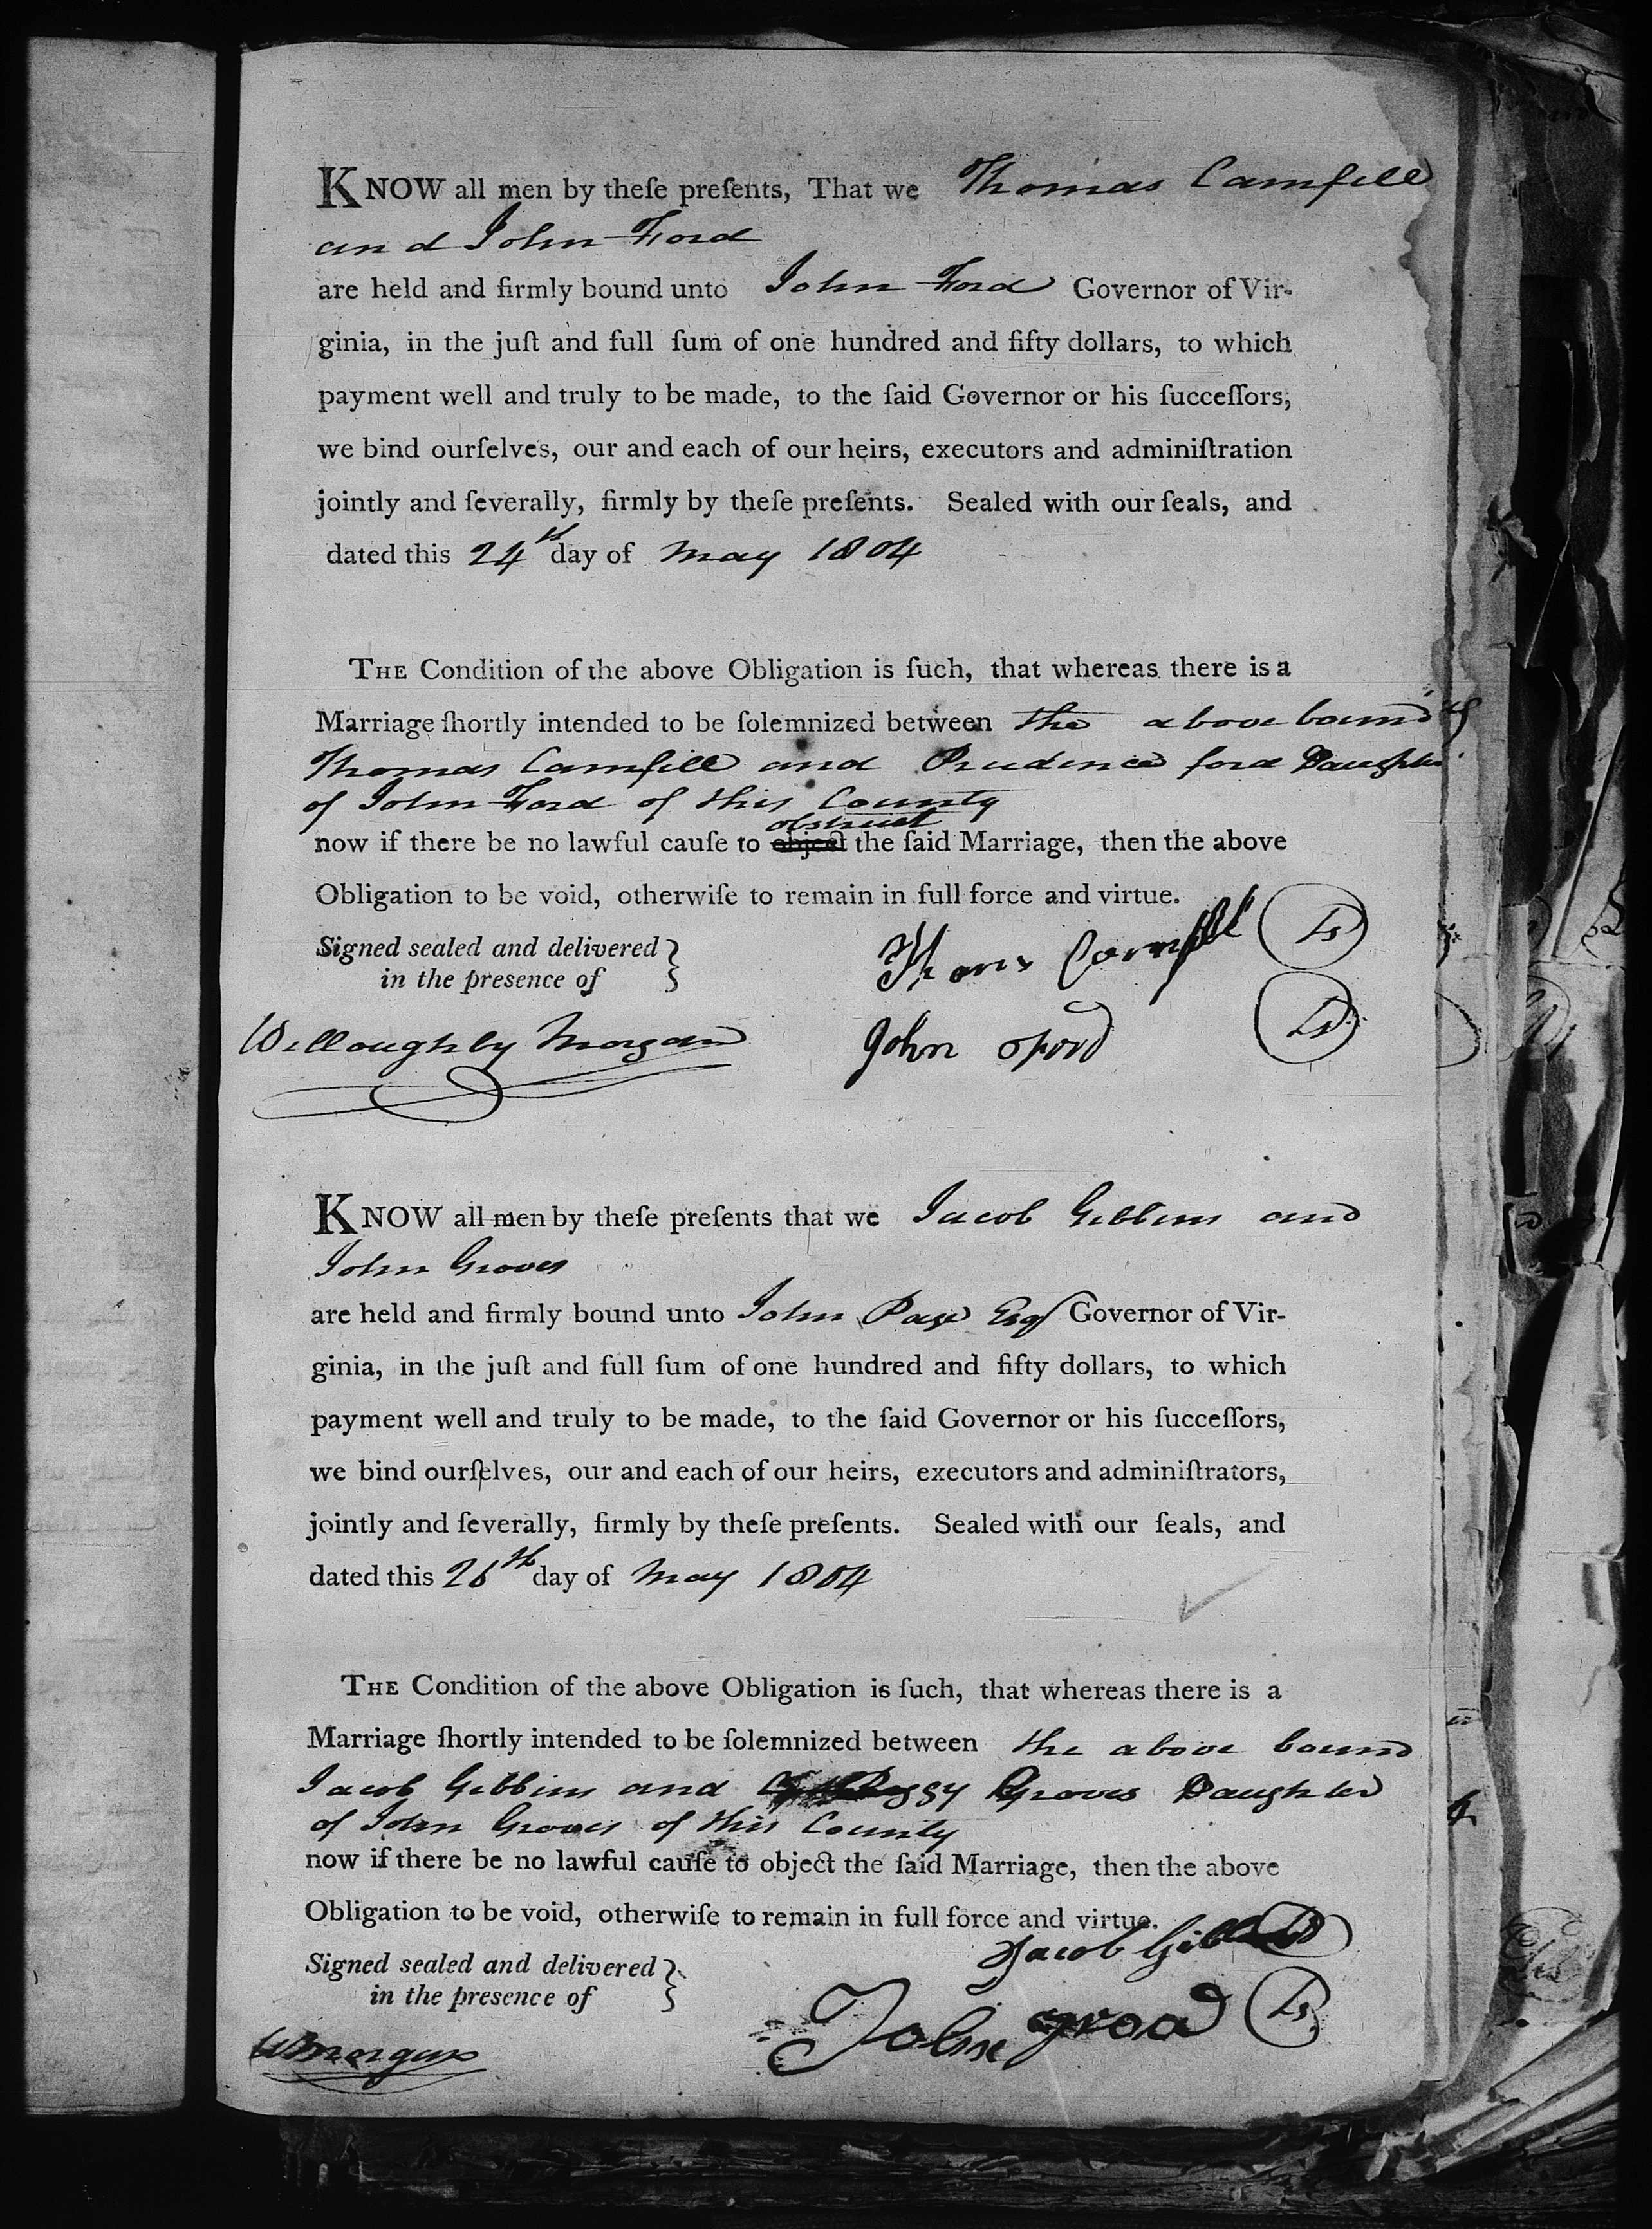 KNOW all men by theſe preſents, That we Thomas Camfill
and John Ford
are held and firmly bound unto John Ford Governor of Vir-
ginia, in the juſt and full ſum of one hundred and fifty dollars, to which
payment well and truly to be made, to the ſaid Governor or his ſucceſſors,
we bind ourſelves, our and each of our heirs, executors and adminiſtration
jointly and ſeverally, firmly by theſe preſents. Sealed with our ſeals, and
dated this 24th day of May 1804
THE Condition of the above Obligation is ſuch, that whereas there is a
Marriage ſhortly intended to be ſolemnized between the above bound
Thomas Camfill and Prudence ford Daughter
of John Ford of this County
obstruct
now if there be no lawful cauſe to object the ſaid Marriage, then the above
Obligation to be void, otherwiſe to remain in full force and virtue.
Signed sealed and delivered }
in the presence of
Thomas Camfill Ls
Willoughby Morgan John Ford Ls
KNOW all men by theſe preſents that we Jacob Gibbins and
John Groves
are held and firmly bound unto John Page Esqr Governor of Vir-
ginia, in the juſt and full ſum of one hundred and fifty dollars, to which
payment well and truly to be made, to the ſaid Governor or his ſucceſſors,
we bind ourſelves, our and each of our heirs, executors and adminiſtrators,
jointly and ſeverally, firmly by theſe preſents. Sealed with our ſeals, and
dated this 26th day of May 1804
THE Condition of the above Obligation is ſuch, that whereas there is a
Marriage ſhortly intended to be ſolemnized between the above bound
Jacob Gibbins and Peggy Groves Daughter
of John Groves of this County
now if there be no lawful cauſe to object the ſaid Marriage, then the above
Obligation to be void, otherwiſe to remain in full force and virtue.
Signed sealed and delivered }
in the presence of
Jacob Ls
John Ls
WMorgan